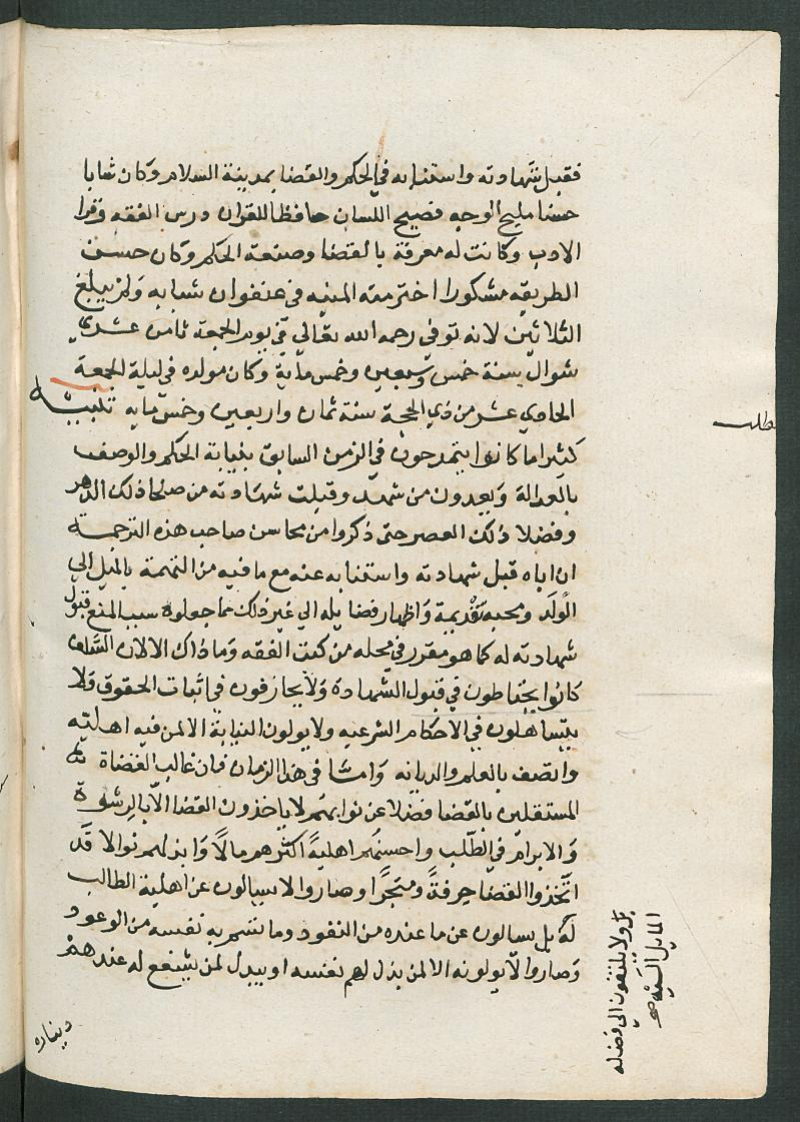 فقبل شهادته واستنابه في الحكم والقضا بمدينة السلام وكان شابا
حسنا مليح الوجه فصيح اللسان حافظا للقران درس الفقه وقرا
الادب وكانت له معرفة بالقضا وصنعة الحكم وكان حسن
الطريقه مشكورا اخترمته المنيه في عنفوان شبابه ولم يبلغ
الثلاثين لانه توفي رحمه الله تعالي في يوم الجمعة ثامن عشري
شوال سنة خمس وسبعين وخمس مأية وكان مولده في ليلة الجمعة
الحادي عشر من ذي الحجة سنة ثمان واربعين وخمس مايه تنبيه
كثيرا ما كانوا يتمدحون في الزمن السابق بنيابة الحكم والوصف
بالعدالة ويعدون من شهد وقبلت شهادته من صلحا ذلك الدهر
وفضلا ذلك العصر حتى ذكروا من محاسن صاحب هذه الترجمة
ان اباه قبل شهادته واستنابه عنه مع ما فيه من التهمة بالميل الي
الولد ومحبه تقديمة واظهار فضايله الي غير ذلك مما جعلوه سبب المنع قبول
شهادته له كما هو مقرر في محله من كتب الفقه وما ذاك الا لان السلف
كانوا يحتاطون في قبول الشهادة ولا يجازفون في اثبات الحقوق ولا
يتساهلون في الاحكام الشرعيه ولا يولون النيابة الا لمن فيه اهليته
واتصف بالعلم والديانه وامـا في هذا الزمان فان غالب القضاة
المستقلين بالقضا فضلا عن نوابهم لا ياخذون القضا الا بالرشوة
والابرام في الطلب واحسنهم اهلية اكثرهم مالا وابذلهم نوالا قد
اتخذوا القضا حرفة ومتجرا وصاروا لا يسالون عن اهلية الطالب
له بل يسالون عن ما عنده من النقود وما تسمح به نفسه من الوعود
وصاروا لا يولونه الا لمن بذل لهم نفسه او يبذل لمن يشفع له عندهم
ديناره
مطلب
بل ولا يلتفتون الي فضله